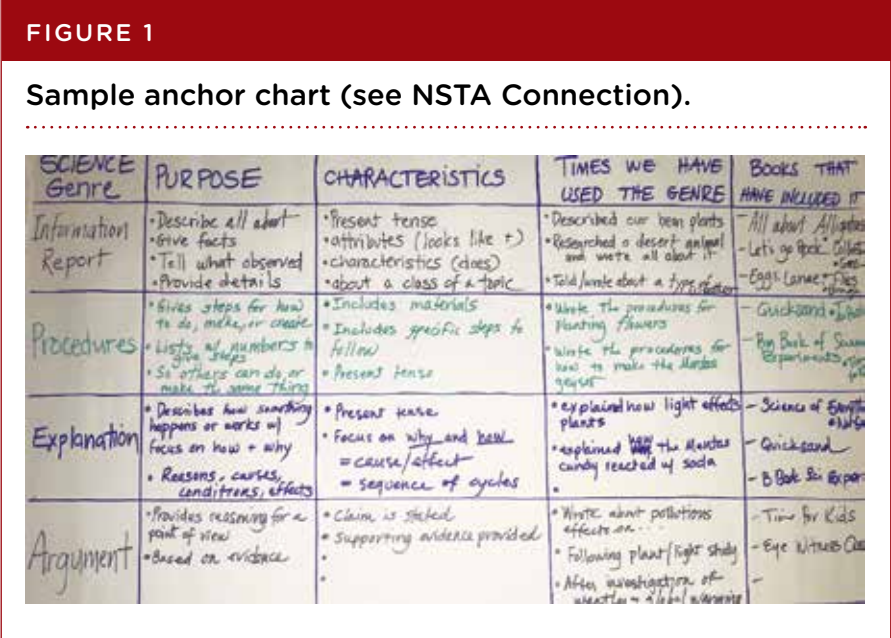 FIGURE 1
Sample anchor chart (see NSTA Connection).
SCIENCE
Genre
PURPOSE
CHARACTERISTICS
TIMES WE HAVE
USED THE GENRE
BOOKS THAT
HAVE INCLUDED IT
Information
Report
• Describe all about
• Give facts
• Tell what observed
• Provide details
• Present tense
• attributes (looks like +)
• characteristics (does)
• about a class of a topic
• Described our bean plants
• Researched a desert animal
and wrote all about it
• Told/wrote about a type of
- All about
- Let's go Rock
- Eggs Larvae
Procedures
• Gives steps for how
to do, make, or create
• Lists w/ numbers to
give steps
• So others can do, or
make the same thing
• Includes materials
• Includes specific steps to
follow
• Present tense
• Wrote the procedures for
Planting flowers
• Wrote the procedures for
how to make the Mentos
geyser
- Quicksand
- Big Book of
Experiments
Explanation
• Describes how something
happens or works w/
focus on how + why
• Reasons, causes,
conditions, effects
• Present tense
• Focus on why and how
= cause/effect
= sequence of cycles
• explained how light effects
plants
• explained the Mentos
candy reacted w/ soda
•
- Science of
- Quicksand
- B Book Sci Exper
Argument
• Provides reasoning for a
point of view
• Based on evidence
• Claim is stated
• Supporting evidence provided
•
•
• Wrote about pollutions
effects on...
• Following plant/light study
• After investigation of
weather + global warming
- Time for Kids
- Eye Witness
-